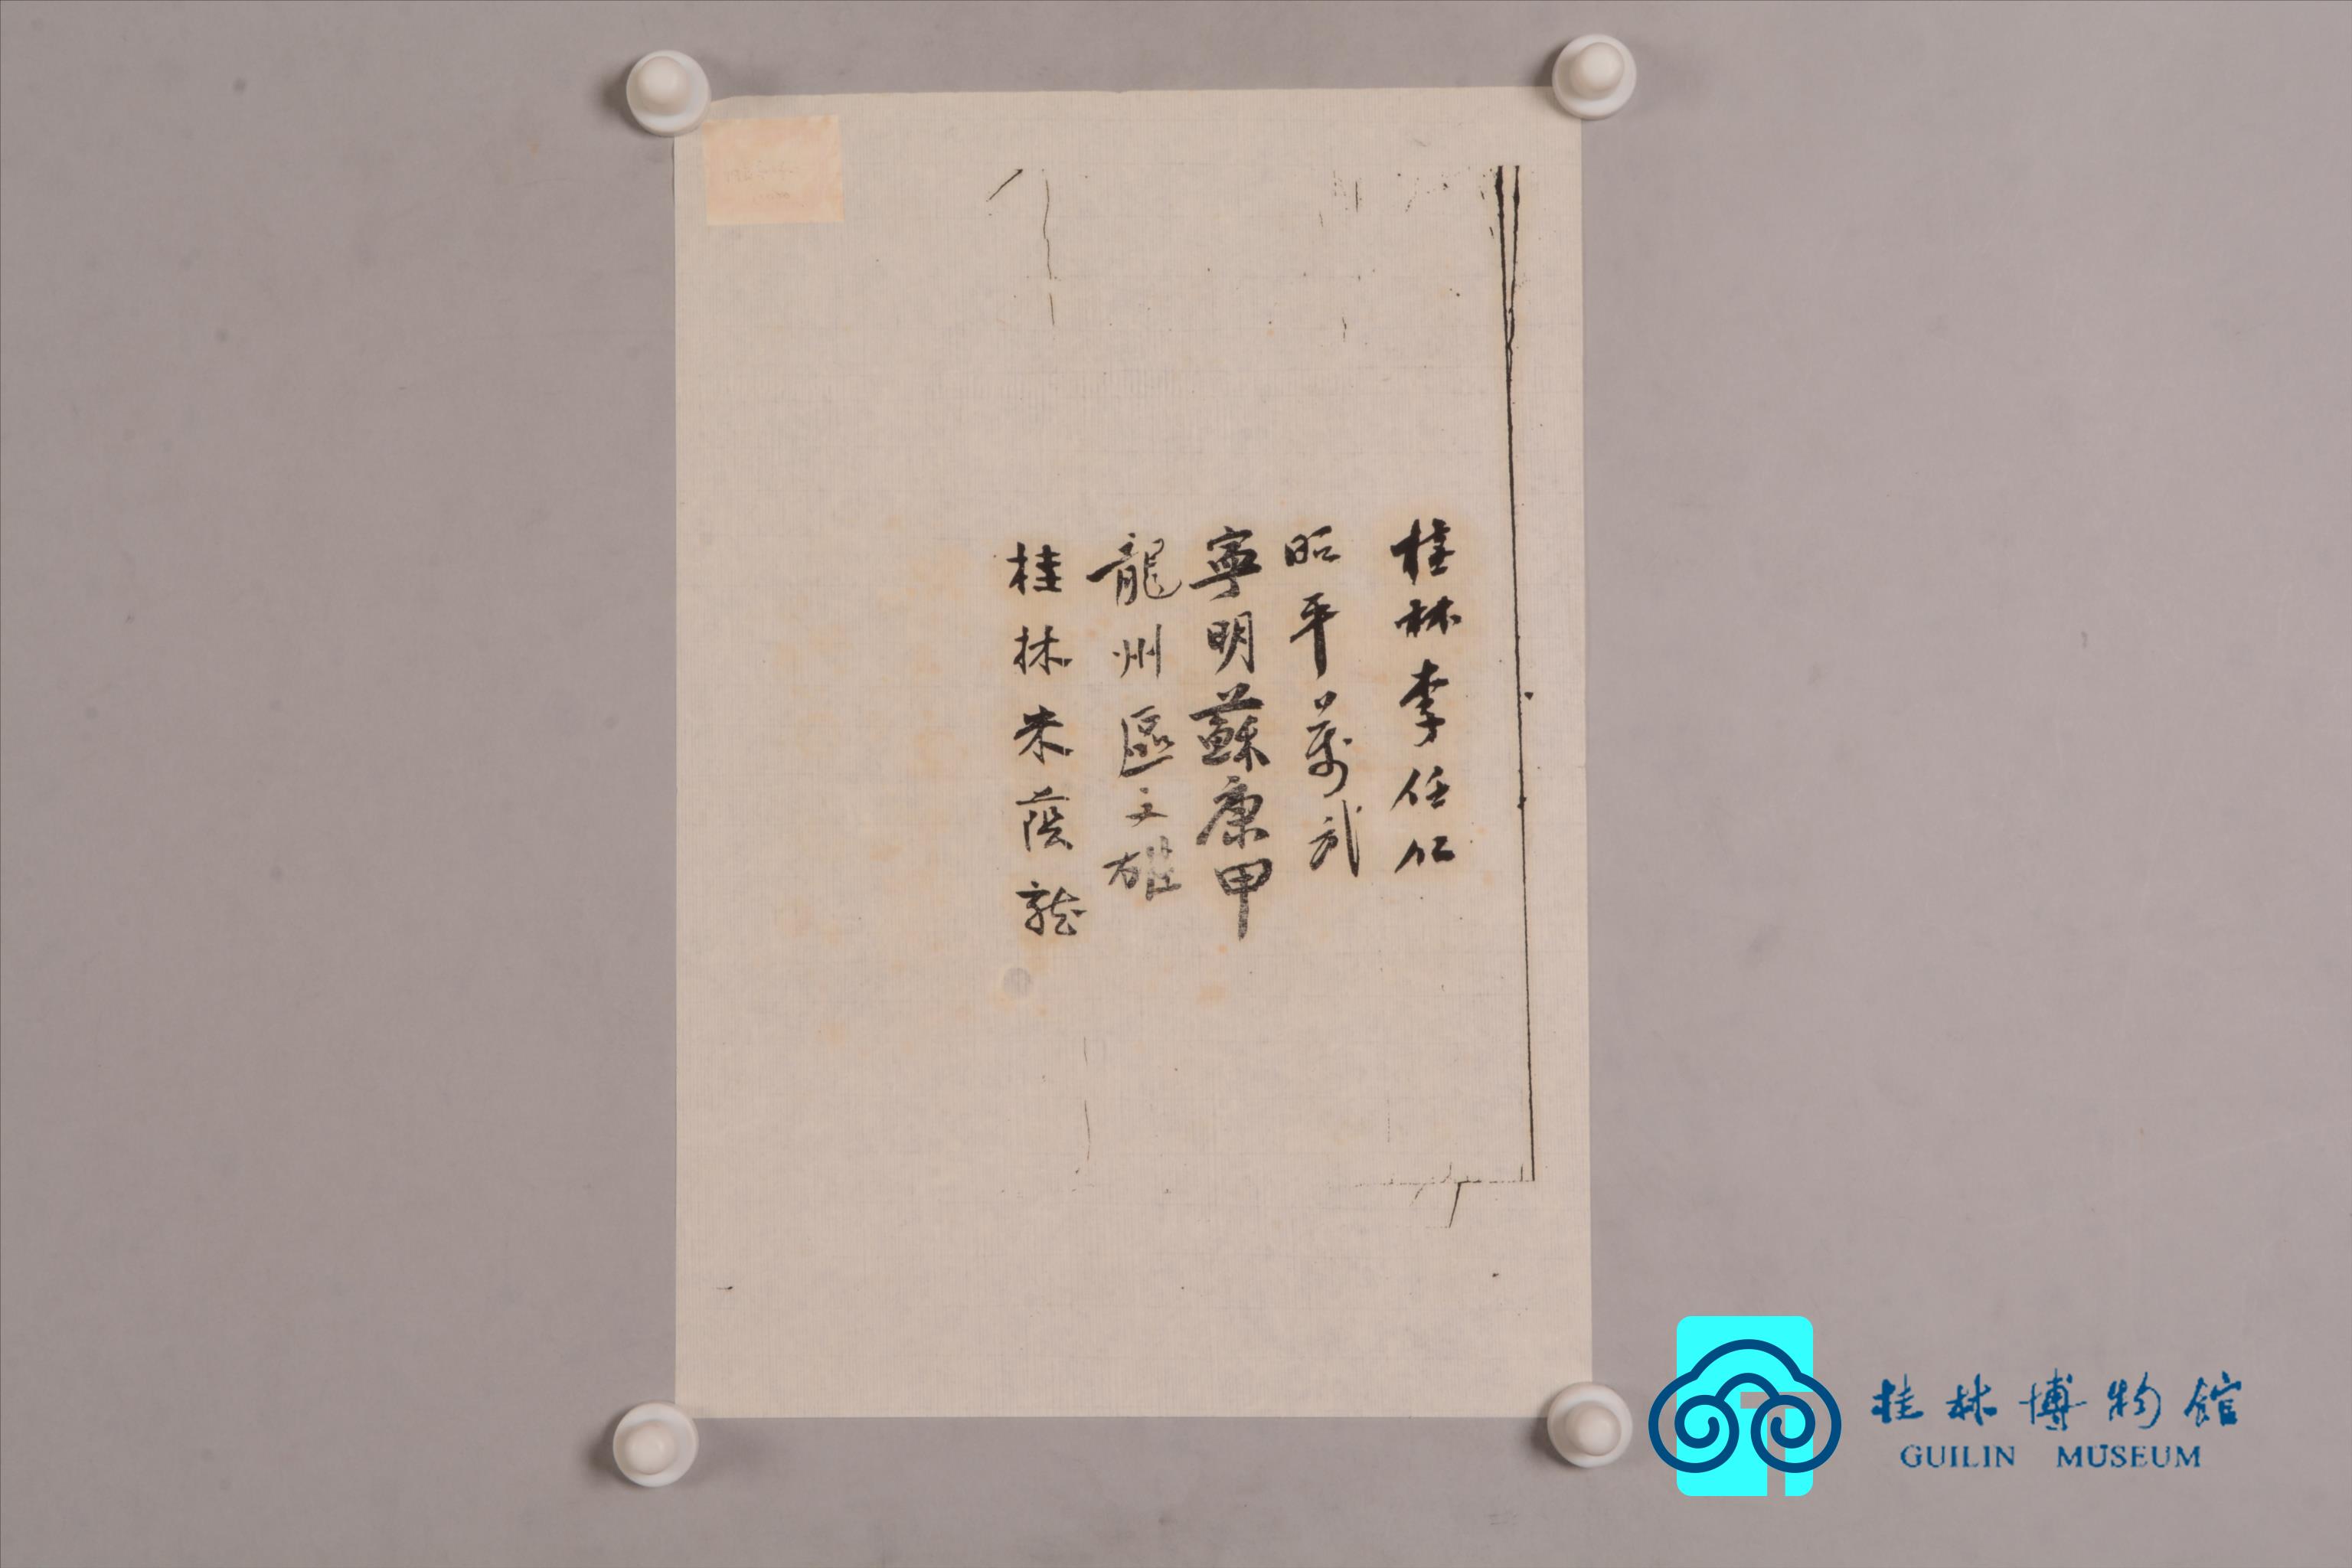 桂林李任仁
昭平萬武
寧明蘇康甲
龍州區文雄
桂林朱蔭龍
桂林博物館
GUILIN MUSEUM